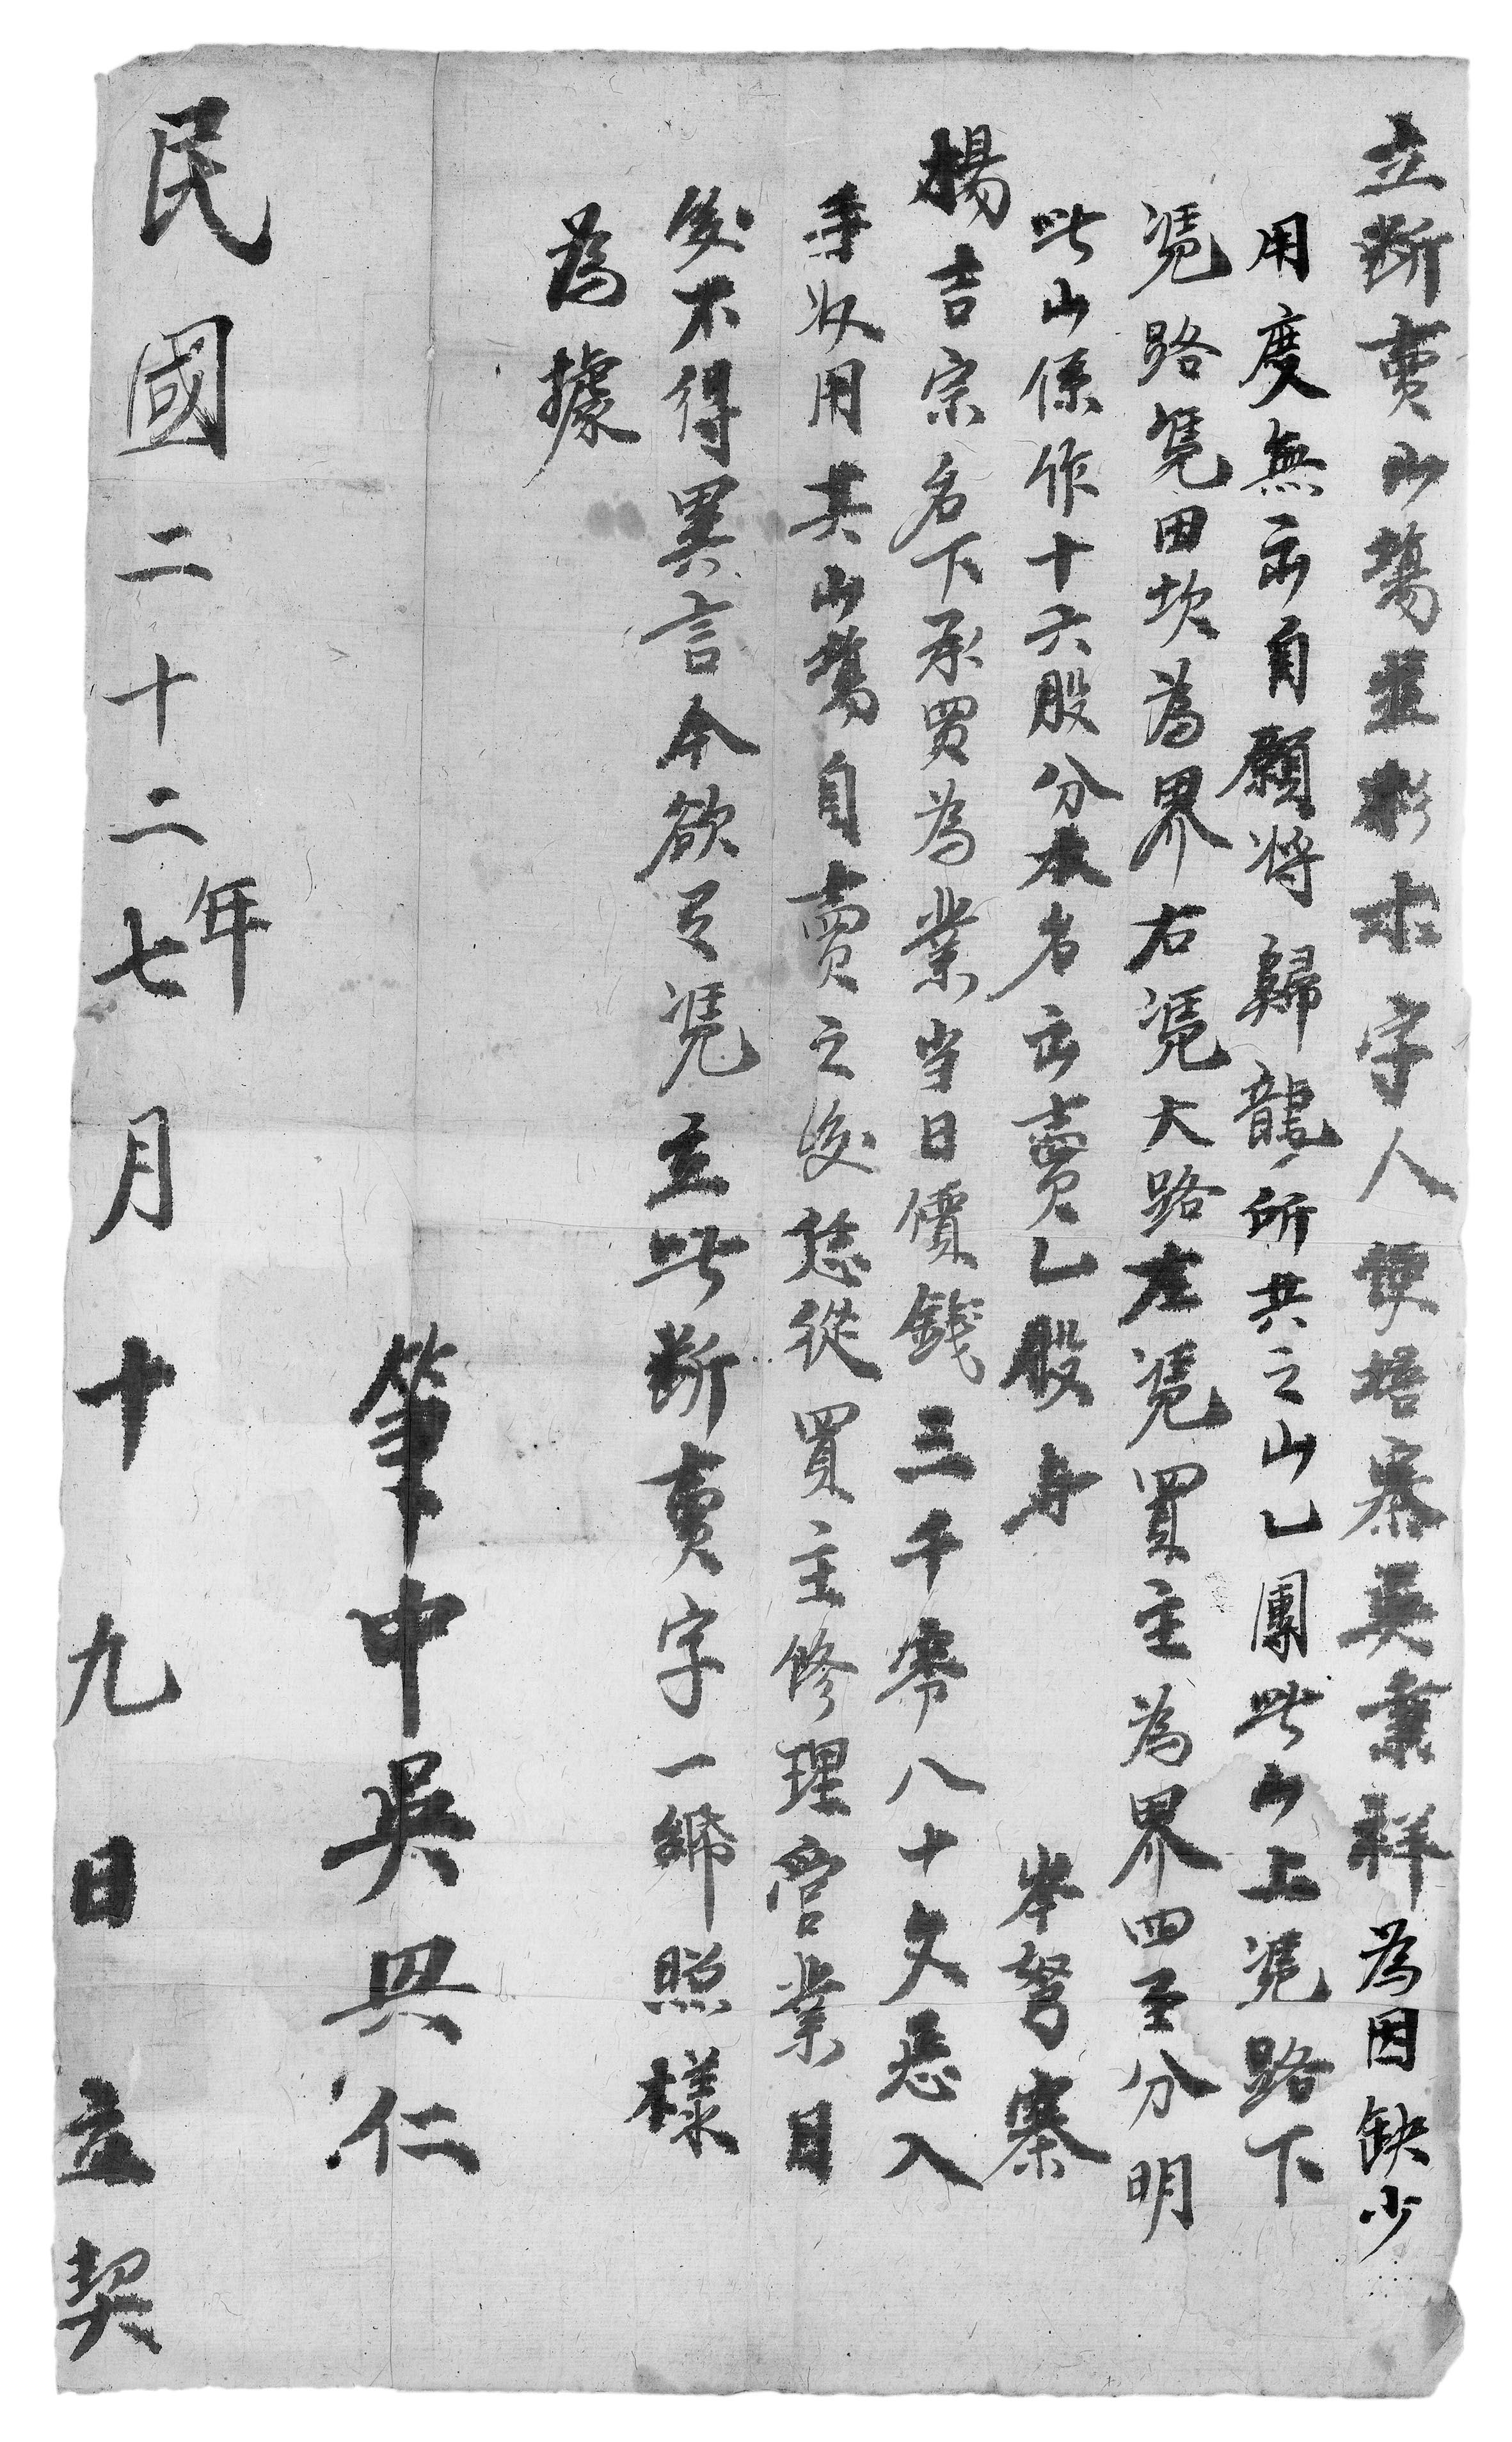 立断賣山塲並杉木字人 埂培寨吳業祥為因缺少
用度無出自願將歸龍所共之山乚團此山上凴路下
凴路凴田坎為界右凴大路左凴買主為界四至分明
此山係作十六股分本名出賣乚股与 岑努寨
楊吉宗名下承買為業当日價錢三千零八十文悉入
手收用其山塲自賣之後悉從買主修理管業日
後不得異言今欲有凴立此断賣字一紙照樣
為據
筆中吳興仁
民國二十二年七月十九日立契